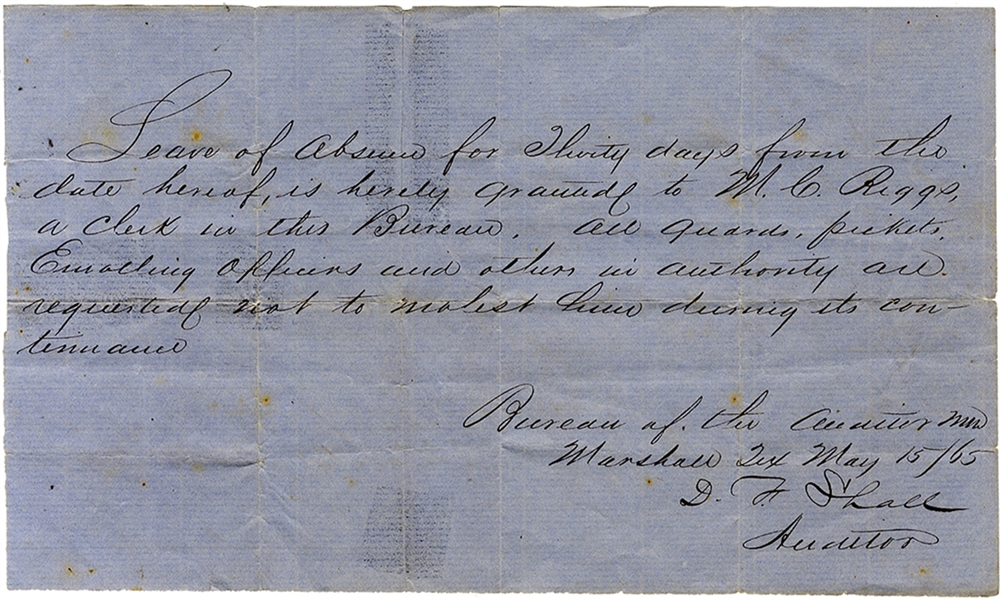 Leave of Absence for Thirty days from the
date hereof, is hereby granted to M. C. Riggs,
a clerk in this Bureau. All guards, pickets,
Enrolling Officers and others in authority are
requested not to molest him during its con-
tinuance
Bureau of the Auditor
Marshall Tex May 15/65
D. F. Shall
Auditor